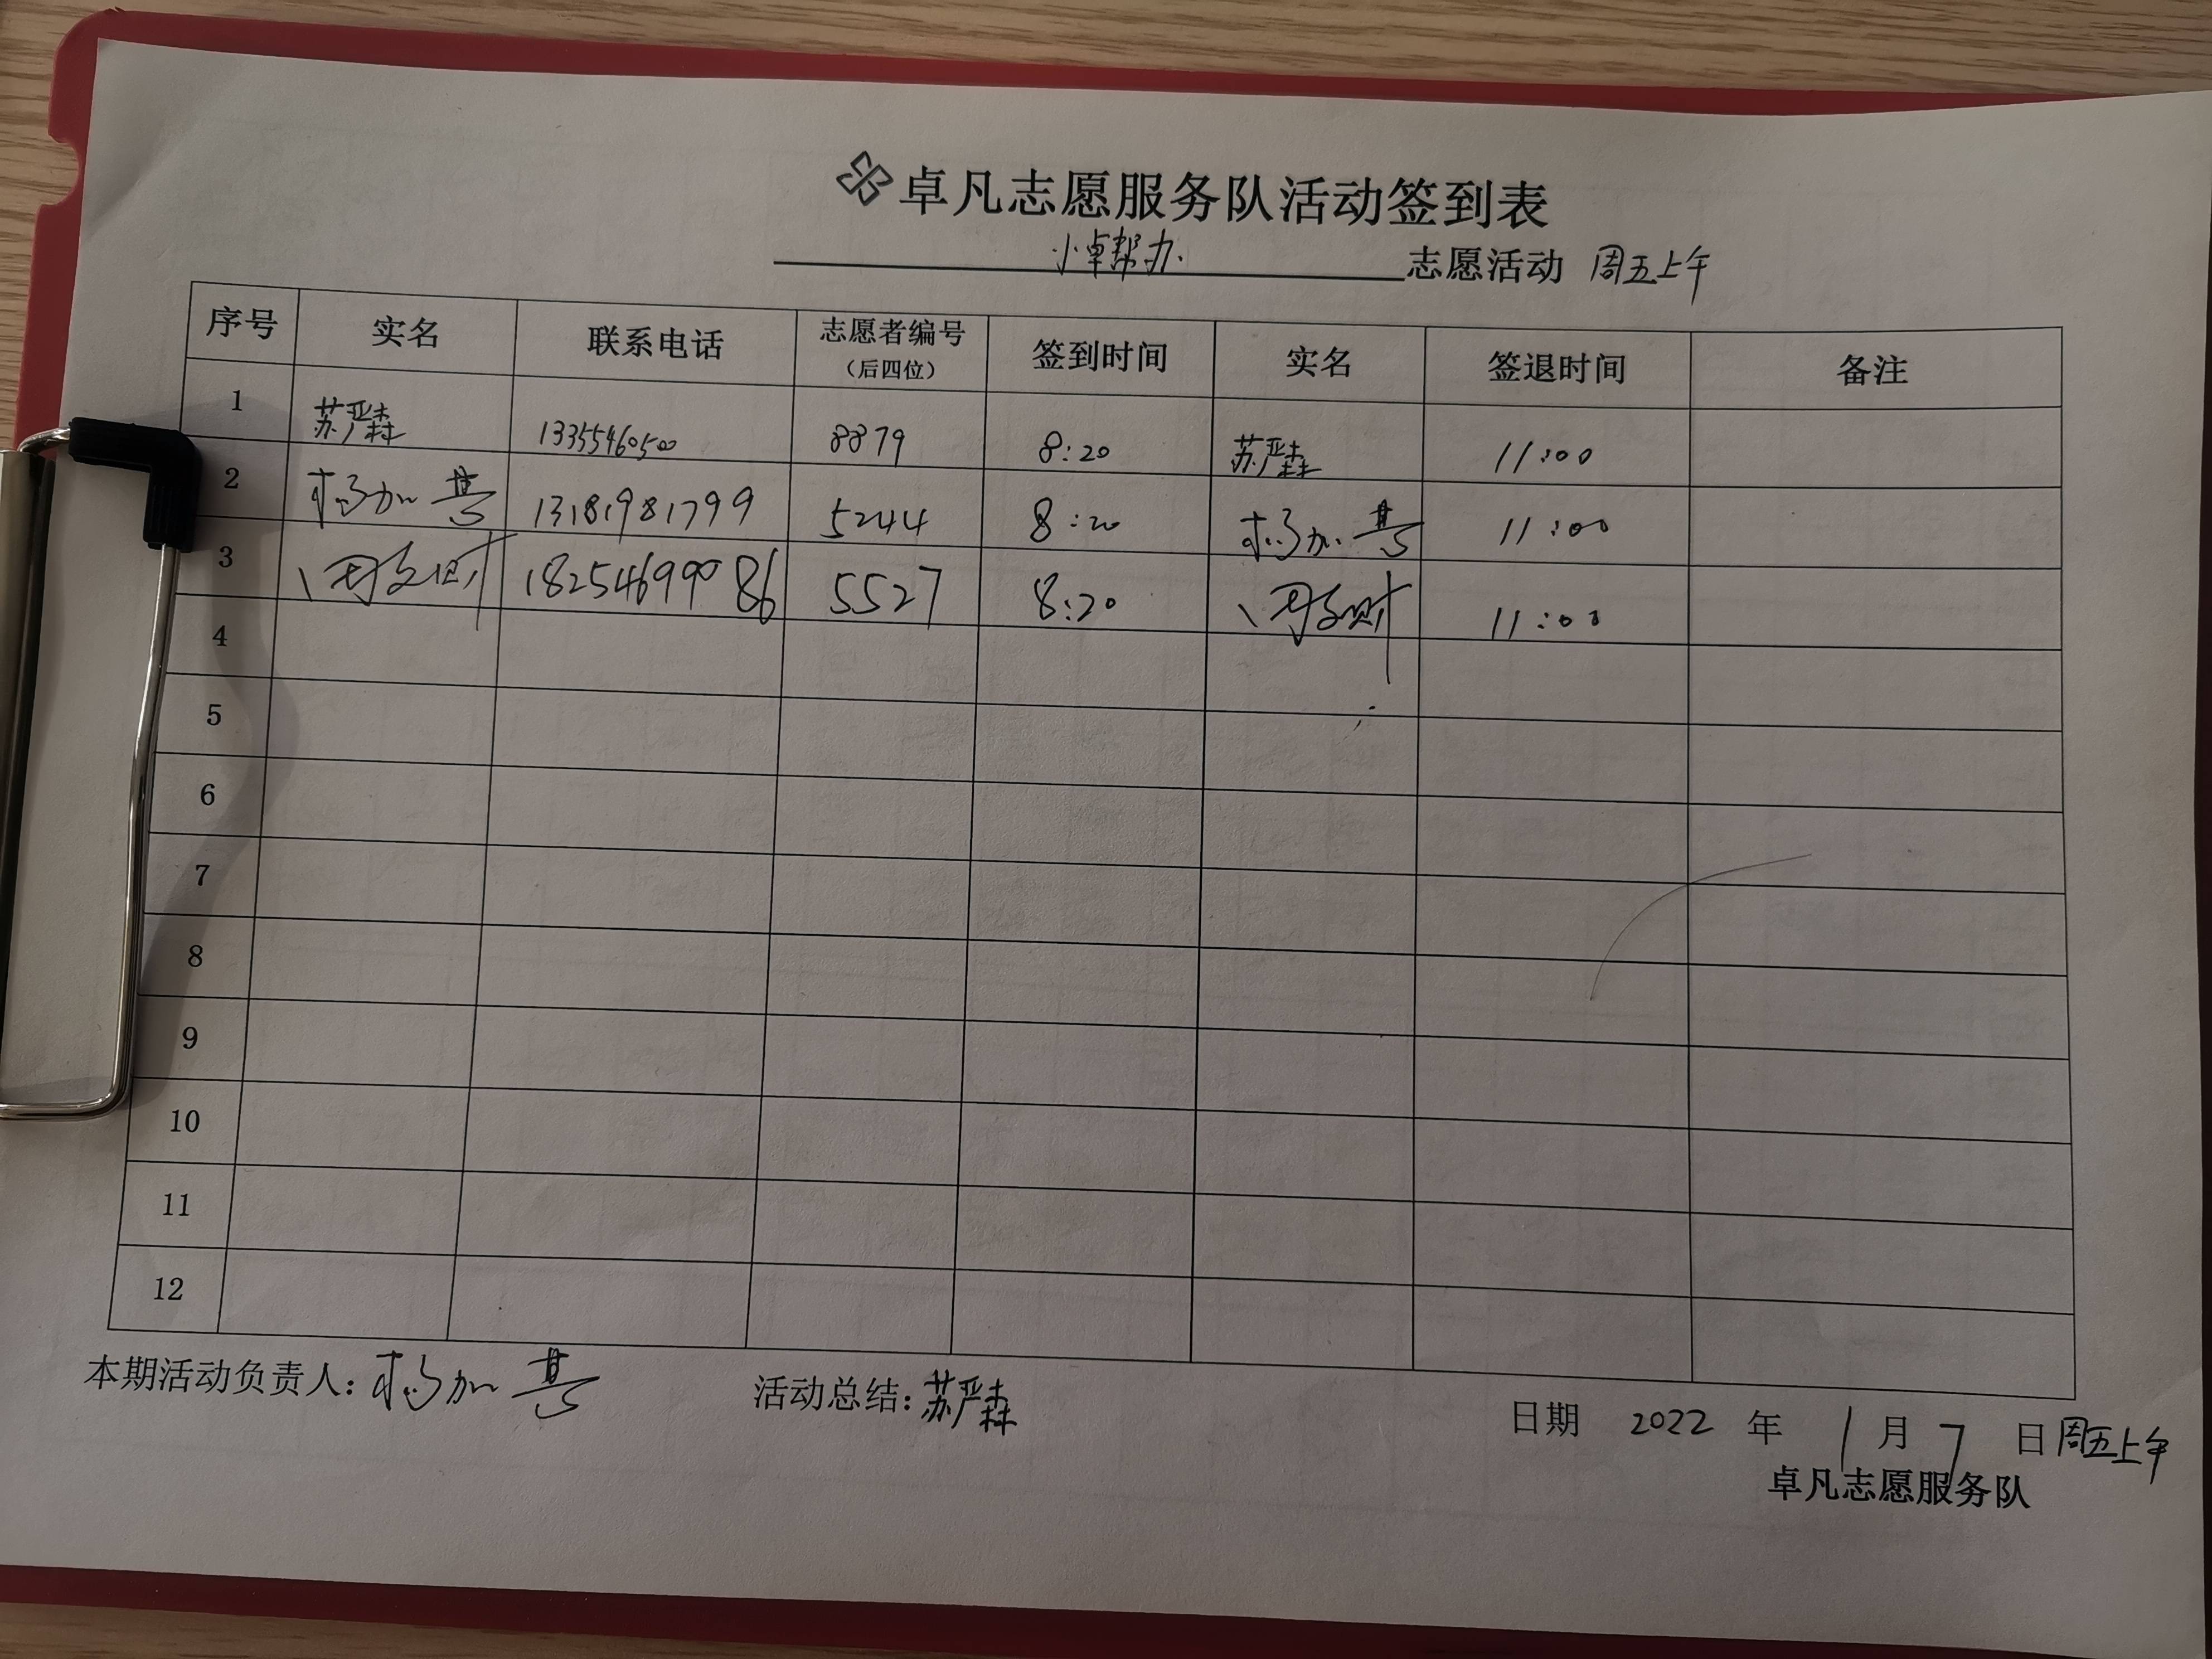 卓凡志愿服务队活动签到表
小卓帮办 志愿活动 周五上午
序号 实名 联系电话 志愿者编号（后四位） 签到时间 实名 签退时间 备注
1 苏严森 13355460500 8879 8:20 苏严森 11:00
2 杨加 13181981799 5244 8:20 杨加 11:00
3 18254699086 5527 8:20 11:00
4
5
6
7
8
9
10
11
12
本期活动负责人：杨加 活动总结：苏严森 日期 2022 年 1 月 7 日 周五上午
卓凡志愿服务队